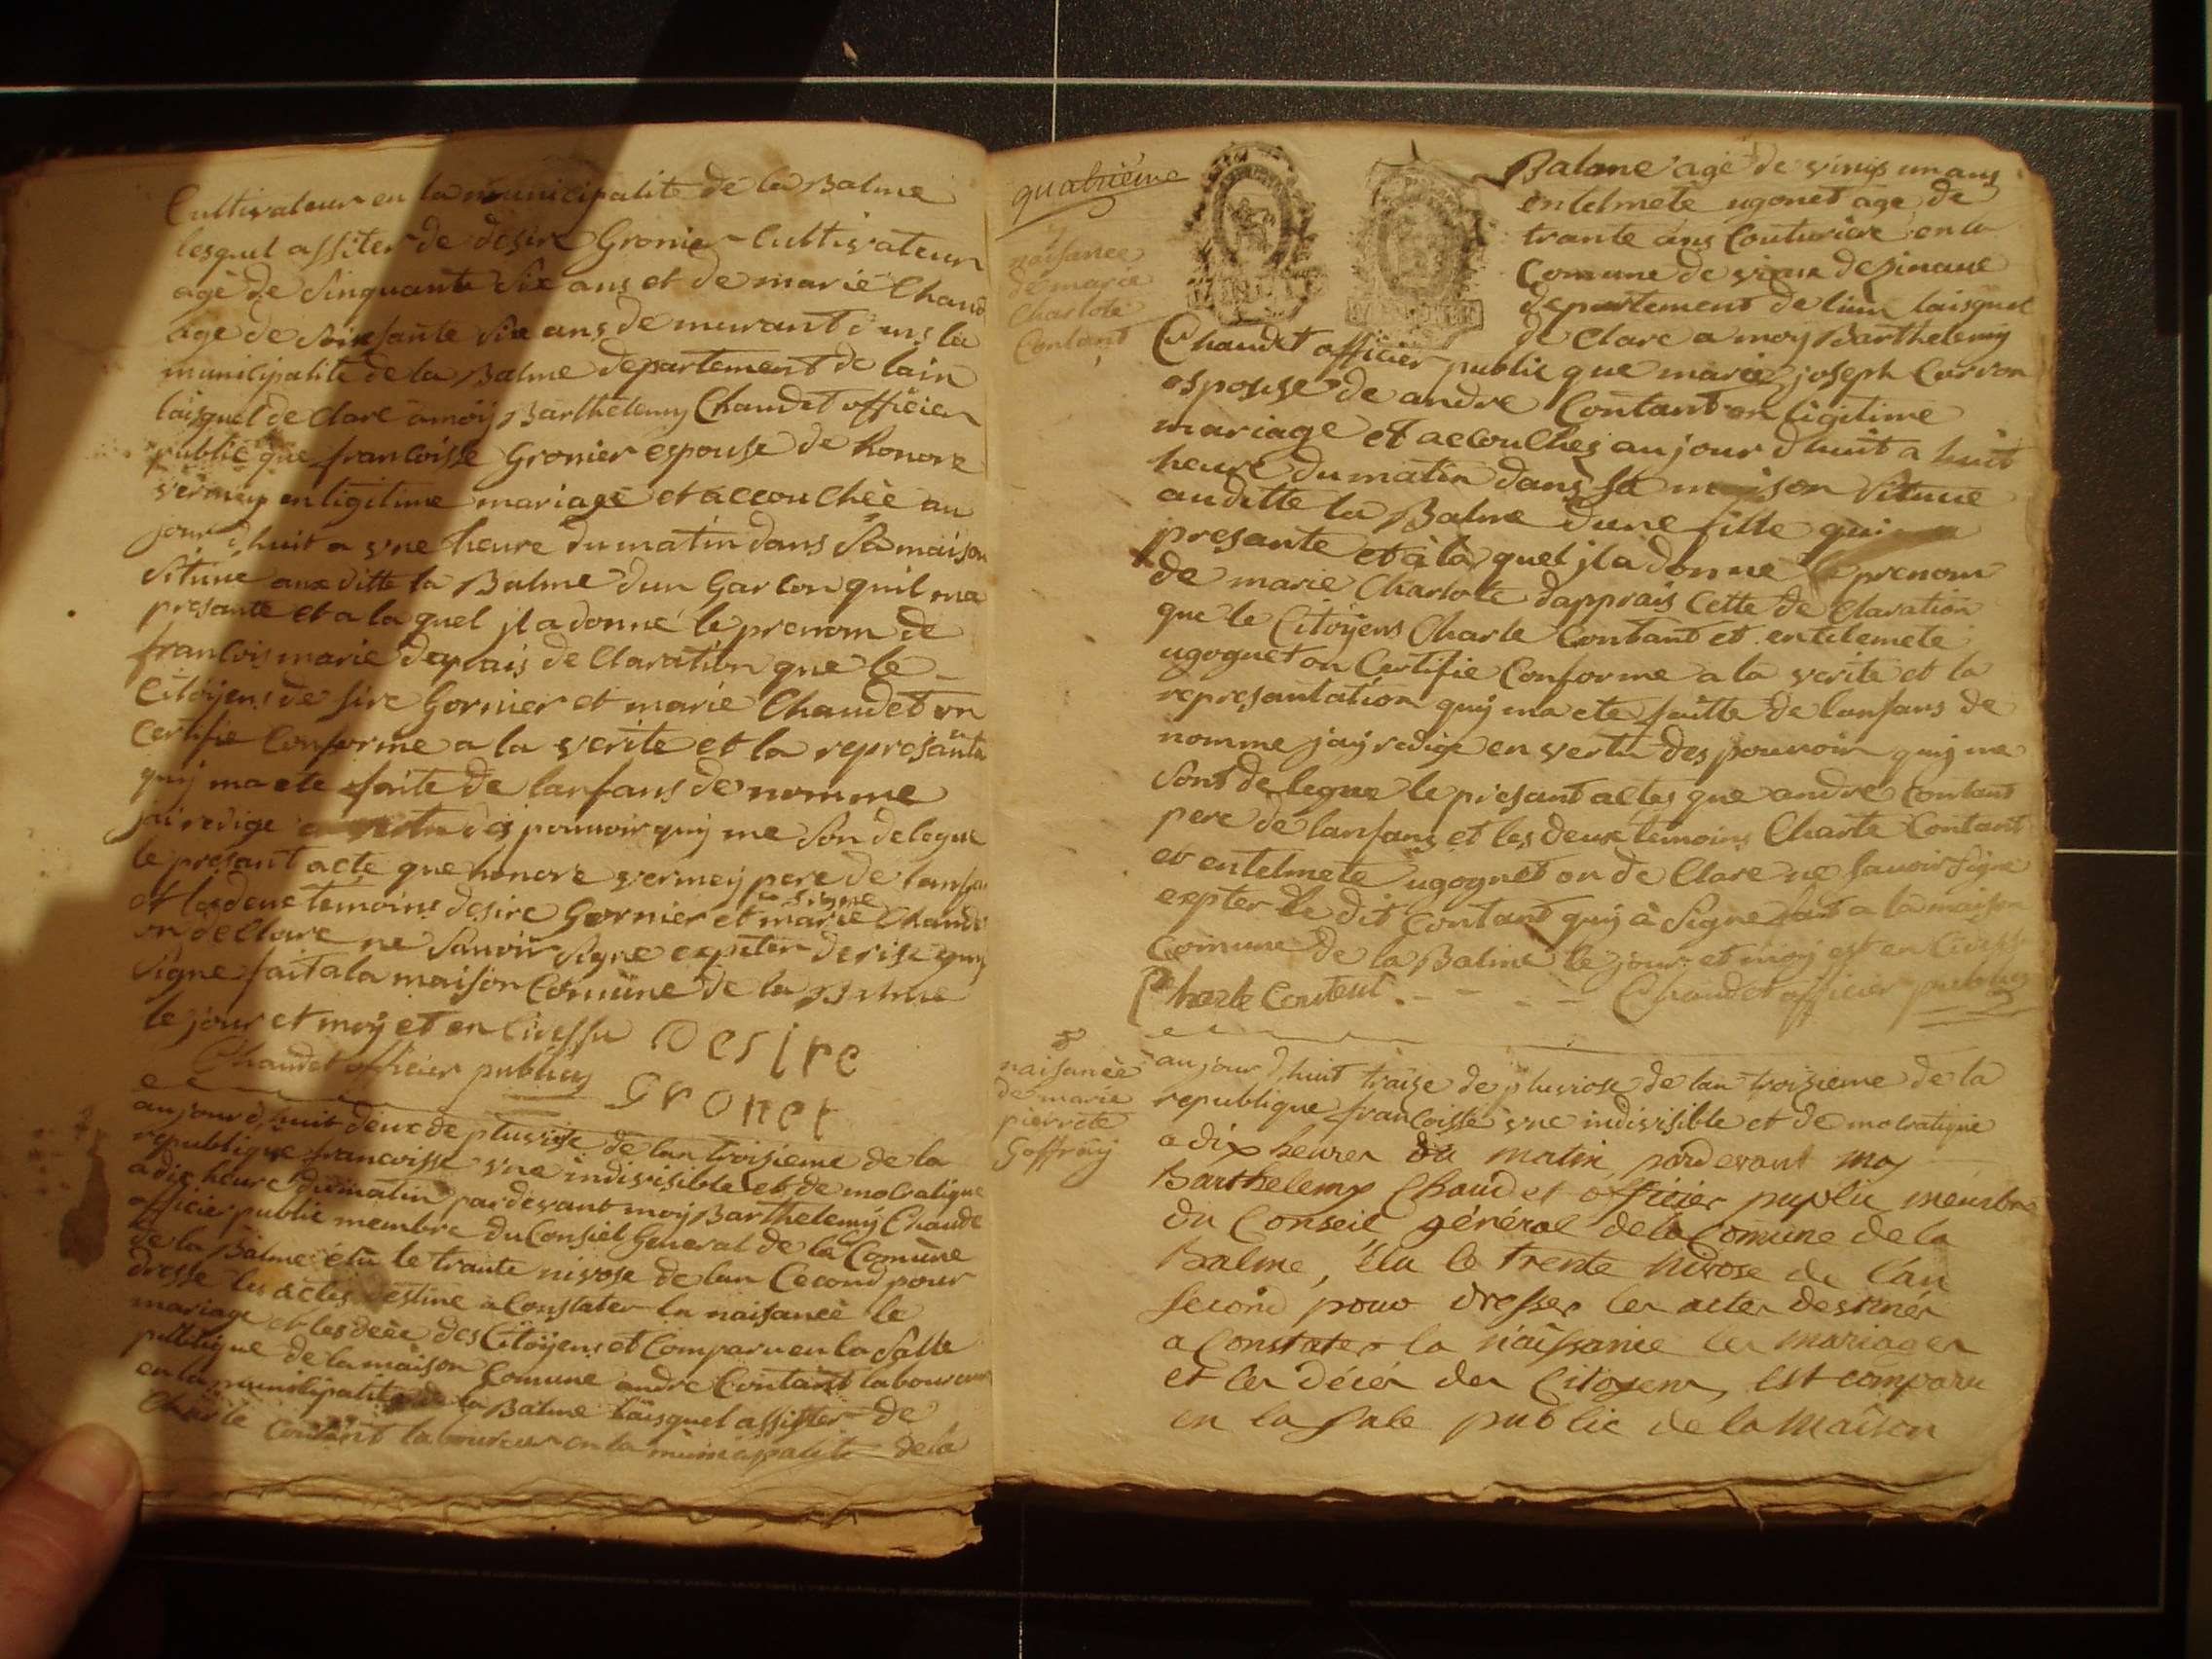 Cultivateur en la municipalite de la Balme
lesquel assiter de desire Gronier Cultivateur
agé de sinquante six ans et de marie Chaud
age de soixsante six ans demurant dans la
municipalité de la Balme departement de lain
laisquel de Clare a moij Barthelemy Chaudet officier
public que francoisse Gronier espouse de honore
vermeij en ligitime mariage et accouchée au
jour d huit a vne heure du matin dans sa maison
situue aux ditte la Balme dun Garcon quil ma
presante et a la quel jl a donné le prenom de
francois marie daprais de Claration que le
Citoijens de sire Gornier et marie Chaudet on
Certifie Conforme a la verite et la represanta
quij ma ete faite de lanfans de nomme
jai redige en vertu des pouvoir quij me son delegue
le presant acte que honore vermeij pere de lanfa
et les deux temoins desire Gornier et marie Chaudi
a signe
on de Clare ne savoir signe expter derise quij
signe fait a la maison Comune de la Balme
le jour et moij et en Civessu Desire
Chaudet officier publicq Gronet
aujour d huit deux de pluviose de lan troisieme de la
republique francoisse vne indivisible et de mocratique
a dix heure du matin par devant moij Barthelemij Chaude
officier public membre du Consiel General de la Comune
de la Balme élu le trante nivose de lan Cecond pour
dresse les actes destine a Constater la naisance le
mariage et les dece des Citoijens et Comparu en la salle
publique de la maison Comune andre Contant laboureur
en la municipalite de la Balme laisquel assister de
Charle Contant laboureur en la municapalite de la
quatrieme
naisance
de marie
Charlote
Contant
Balme age de vinit un ans
entelmete ugonet age de
trante ans Couturiere en la
Comune de vieux
departement de lain laisquel
de Clare a moij Barthelemij
Chaudet officier public que marie joseph Carron
espouse de andre Contant en ligitime
mariage et accouches au jour d huit a huit
heure du matin dans sa maison situue
au ditte la Balme dune fille qui
presante et a la quel jl a donne le prenom
de marie Charlote dapprais Cette de Claration
que le Citoijens Charle Contant et entelemete
ugognet on Certifie Conforme a la verite et la
represantation quij ma ete faitte de lanfans de
nomme jaij redige en vertu des pouvoir quij me
sont delegue le presant actes que andre Contant
pere de lanfans et les deux temoins Charle Contant
et entelmete ugognet on de Clare ne savoir signe
expter le dit Contant quij a signe fait a la maison
Comune de la Balme le jour et moij est en Civess
Charle Contant Chaudet officier publicq
5
naisanee
de marie
pierrete
Goffrij
aujour d huit traize de pluviose de lan troisieme de la
republique francoisse vne indivisible et de mocratique
a dix heures du matin, pardevant moy
Barthelemy Chaudet officier puplic membre
du Conseil général de la Comune de la
Balme, élu le trente Nivose de l'an
second pour dresser les actes destinés
a Constater la naissance les mariages
et les décés des Citoyens, est comparu
en la sale public de la Maison